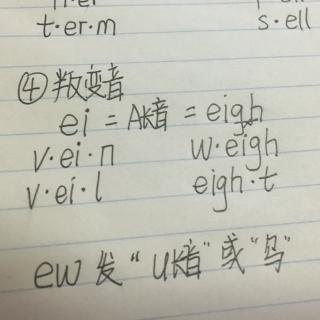 t·er·m s·ell
④ 叛变音
ei = A长音 = eigh
v·ei·n w·eigh
v·ei·l eigh·t
ew 发“U长音”或“乌”